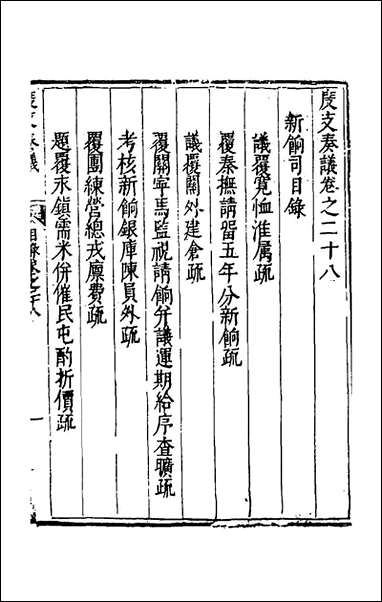 度支奏議卷之二十八
新餉司目錄
議覆寬恤淮屬疏
覆秦撫請留五年分新餉疏
議覆關外建倉疏
覆關寧馬監視請餉并議運期給序查曠疏
考核新餉銀庫陳員外疏
覆團練營總戎廩費疏
題覆永鎮需米併催民屯酌折價疏
度支奏議
目錄卷之二十八
一